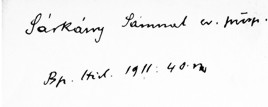 Sárkány Sámuel ev. püsp.
Bp. Hirl. 1911. 40. sz